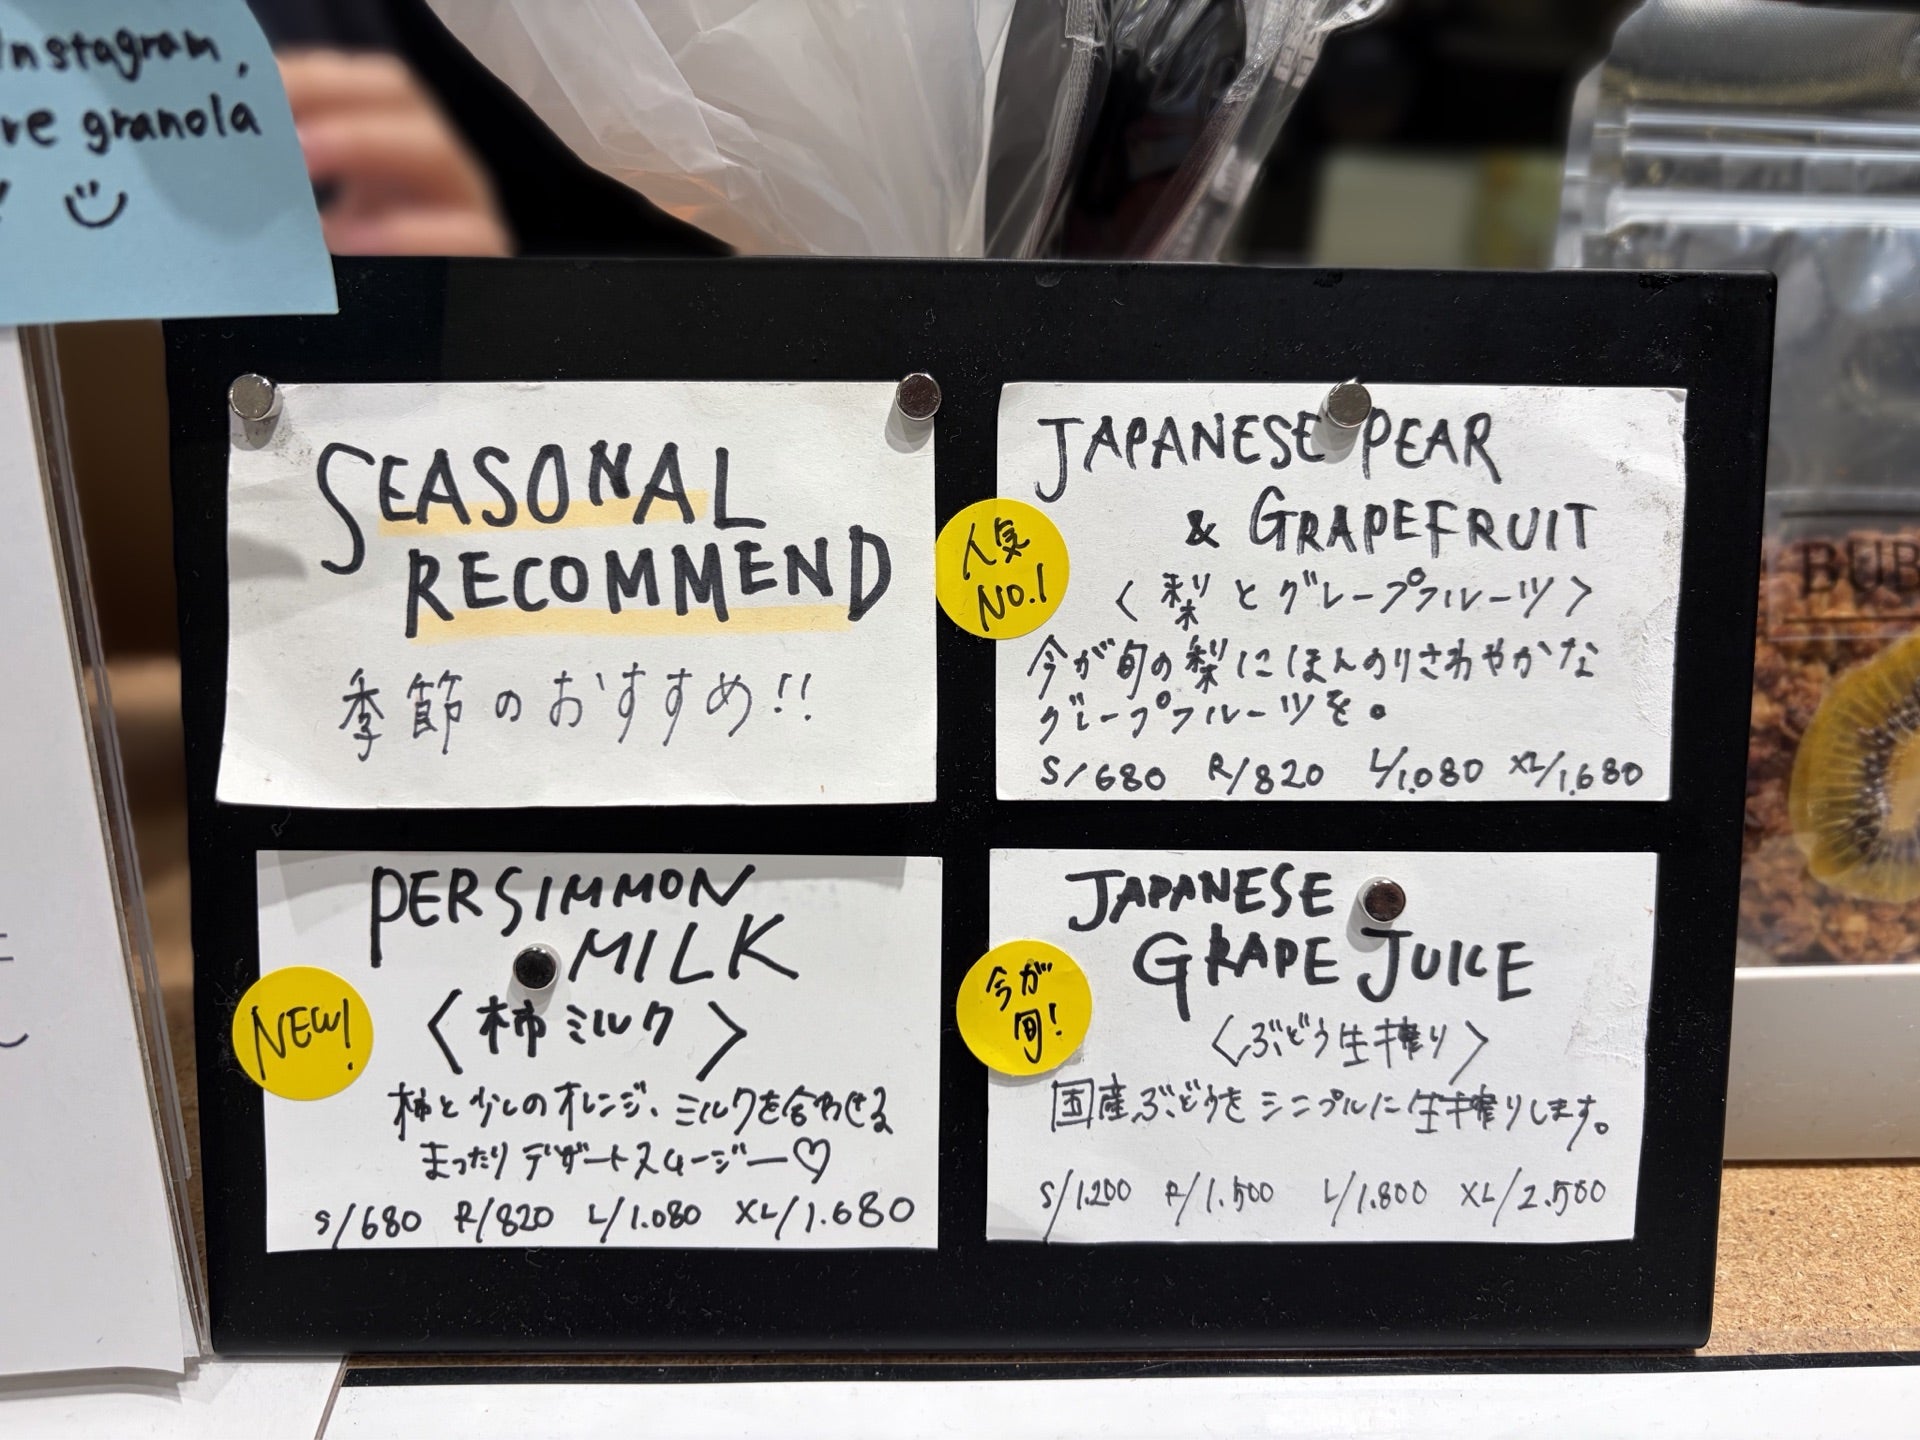 Instagram,
granola
SEASONAL
RECOMMEND
季節のおすすめ!!
JAPANESE PEAR
& GRAPEFRUIT
人気
NO.1
〈梨とグレープフルーツ〉
今が旬の梨にほんのりさわやかな
グレープフルーツを。
S/680 R/820 L/1.080 XL/1.680
PERSIMMON
MILK
NEW!
〈柿ミルク〉
柿と少しのオレンジ、ミルクを合わせる
まったりデザートスムージー♡
S/680 R/820 L/1.080 XL/1.680
JAPANESE
GRAPE JUICE
今が
旬!
〈ぶどう生搾り〉
国産ぶどうをシンプルに生搾りします。
S/1.200 R/1.500 L/1.800 XL/2.500
BUB